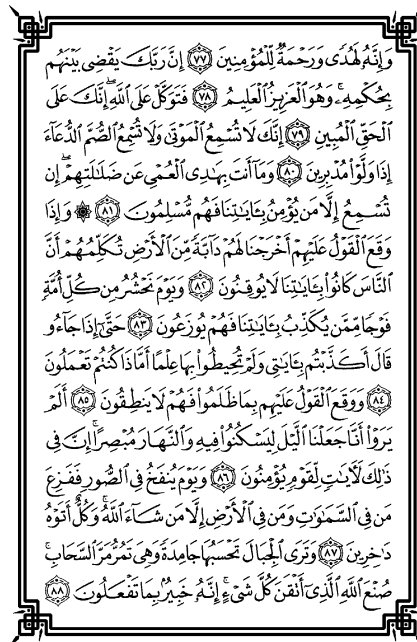 وَإِنَّهُۥ لَهُدًى وَرَحْمَةٌ لِّلْمُؤْمِنِينَ ٧٧ إِنَّ رَبَّكَ يَقْضِى بَيْنَهُم
بِحُكْمِهِۦ ۚ وَهُوَ ٱلْعَزِيزُ ٱلْعَلِيمُ ٧٨ فَتَوَكَّلْ عَلَى ٱللَّهِ ۖ إِنَّكَ عَلَى
ٱلْحَقِّ ٱلْمُبِينِ ٧٩ إِنَّكَ لَا تُسْمِعُ ٱلْمَوْتَىٰ وَلَا تُسْمِعُ ٱلصُّمَّ ٱلدُّعَآءَ
إِذَا وَلَّوْا۟ مُدْبِرِينَ ٨٠ وَمَآ أَنتَ بِهَـٰدِى ٱلْعُمْىِ عَن ضَلَـٰلَتِهِمْ ۖ إِن
تُسْمِعُ إِلَّا مَن يُؤْمِنُ بِـَٔايَـٰتِنَا فَهُم مُّسْلِمُونَ ٨١ ۞ وَإِذَا
وَقَعَ ٱلْقَوْلُ عَلَيْهِمْ أَخْرَجْنَا لَهُمْ دَآبَّةً مِّنَ ٱلْأَرْضِ تُكَلِّمُهُمْ أَنَّ
ٱلنَّاسَ كَانُوا۟ بِـَٔايَـٰتِنَا لَا يُوقِنُونَ ٨٢ وَيَوْمَ نَحْشُرُ مِن كُلِّ أُمَّةٍ
فَوْجًا مِّمَّن يُكَذِّبُ بِـَٔايَـٰتِنَا فَهُمْ يُوزَعُونَ ٨٣ حَتَّىٰٓ إِذَا جَآءُو
قَالَ أَكَذَّبْتُم بِـَٔايَـٰتِى وَلَمْ تُحِيطُوا۟ بِهَا عِلْمًا أَمَّاذَا كُنتُمْ تَعْمَلُونَ
٨٤ وَوَقَعَ ٱلْقَوْلُ عَلَيْهِم بِمَا ظَلَمُوا۟ فَهُمْ لَا يَنطِقُونَ ٨٥ أَلَمْ
يَرَوْا۟ أَنَّا جَعَلْنَا ٱلَّيْلَ لِيَسْكُنُوا۟ فِيهِ وَٱلنَّهَارَ مُبْصِرًا ۚ إِنَّ فِى
ذَٰلِكَ لَـَٔايَـٰتٍ لِّقَوْمٍ يُؤْمِنُونَ ٨٦ وَيَوْمَ يُنفَخُ فِى ٱلصُّورِ فَفَزِعَ
مَن فِى ٱلسَّمَـٰوَٰتِ وَمَن فِى ٱلْأَرْضِ إِلَّا مَن شَآءَ ٱللَّهُ ۚ وَكُلٌّ أَتَوْهُ
دَٰخِرِينَ ٨٧ وَتَرَى ٱلْجِبَالَ تَحْسَبُهَا جَامِدَةً وَهِىَ تَمُرُّ مَرَّ ٱلسَّحَابِ ۚ
صُنْعَ ٱللَّهِ ٱلَّذِىٓ أَتْقَنَ كُلَّ شَىْءٍ ۚ إِنَّهُۥ خَبِيرٌۢ بِمَا تَفْعَلُونَ ٨٨